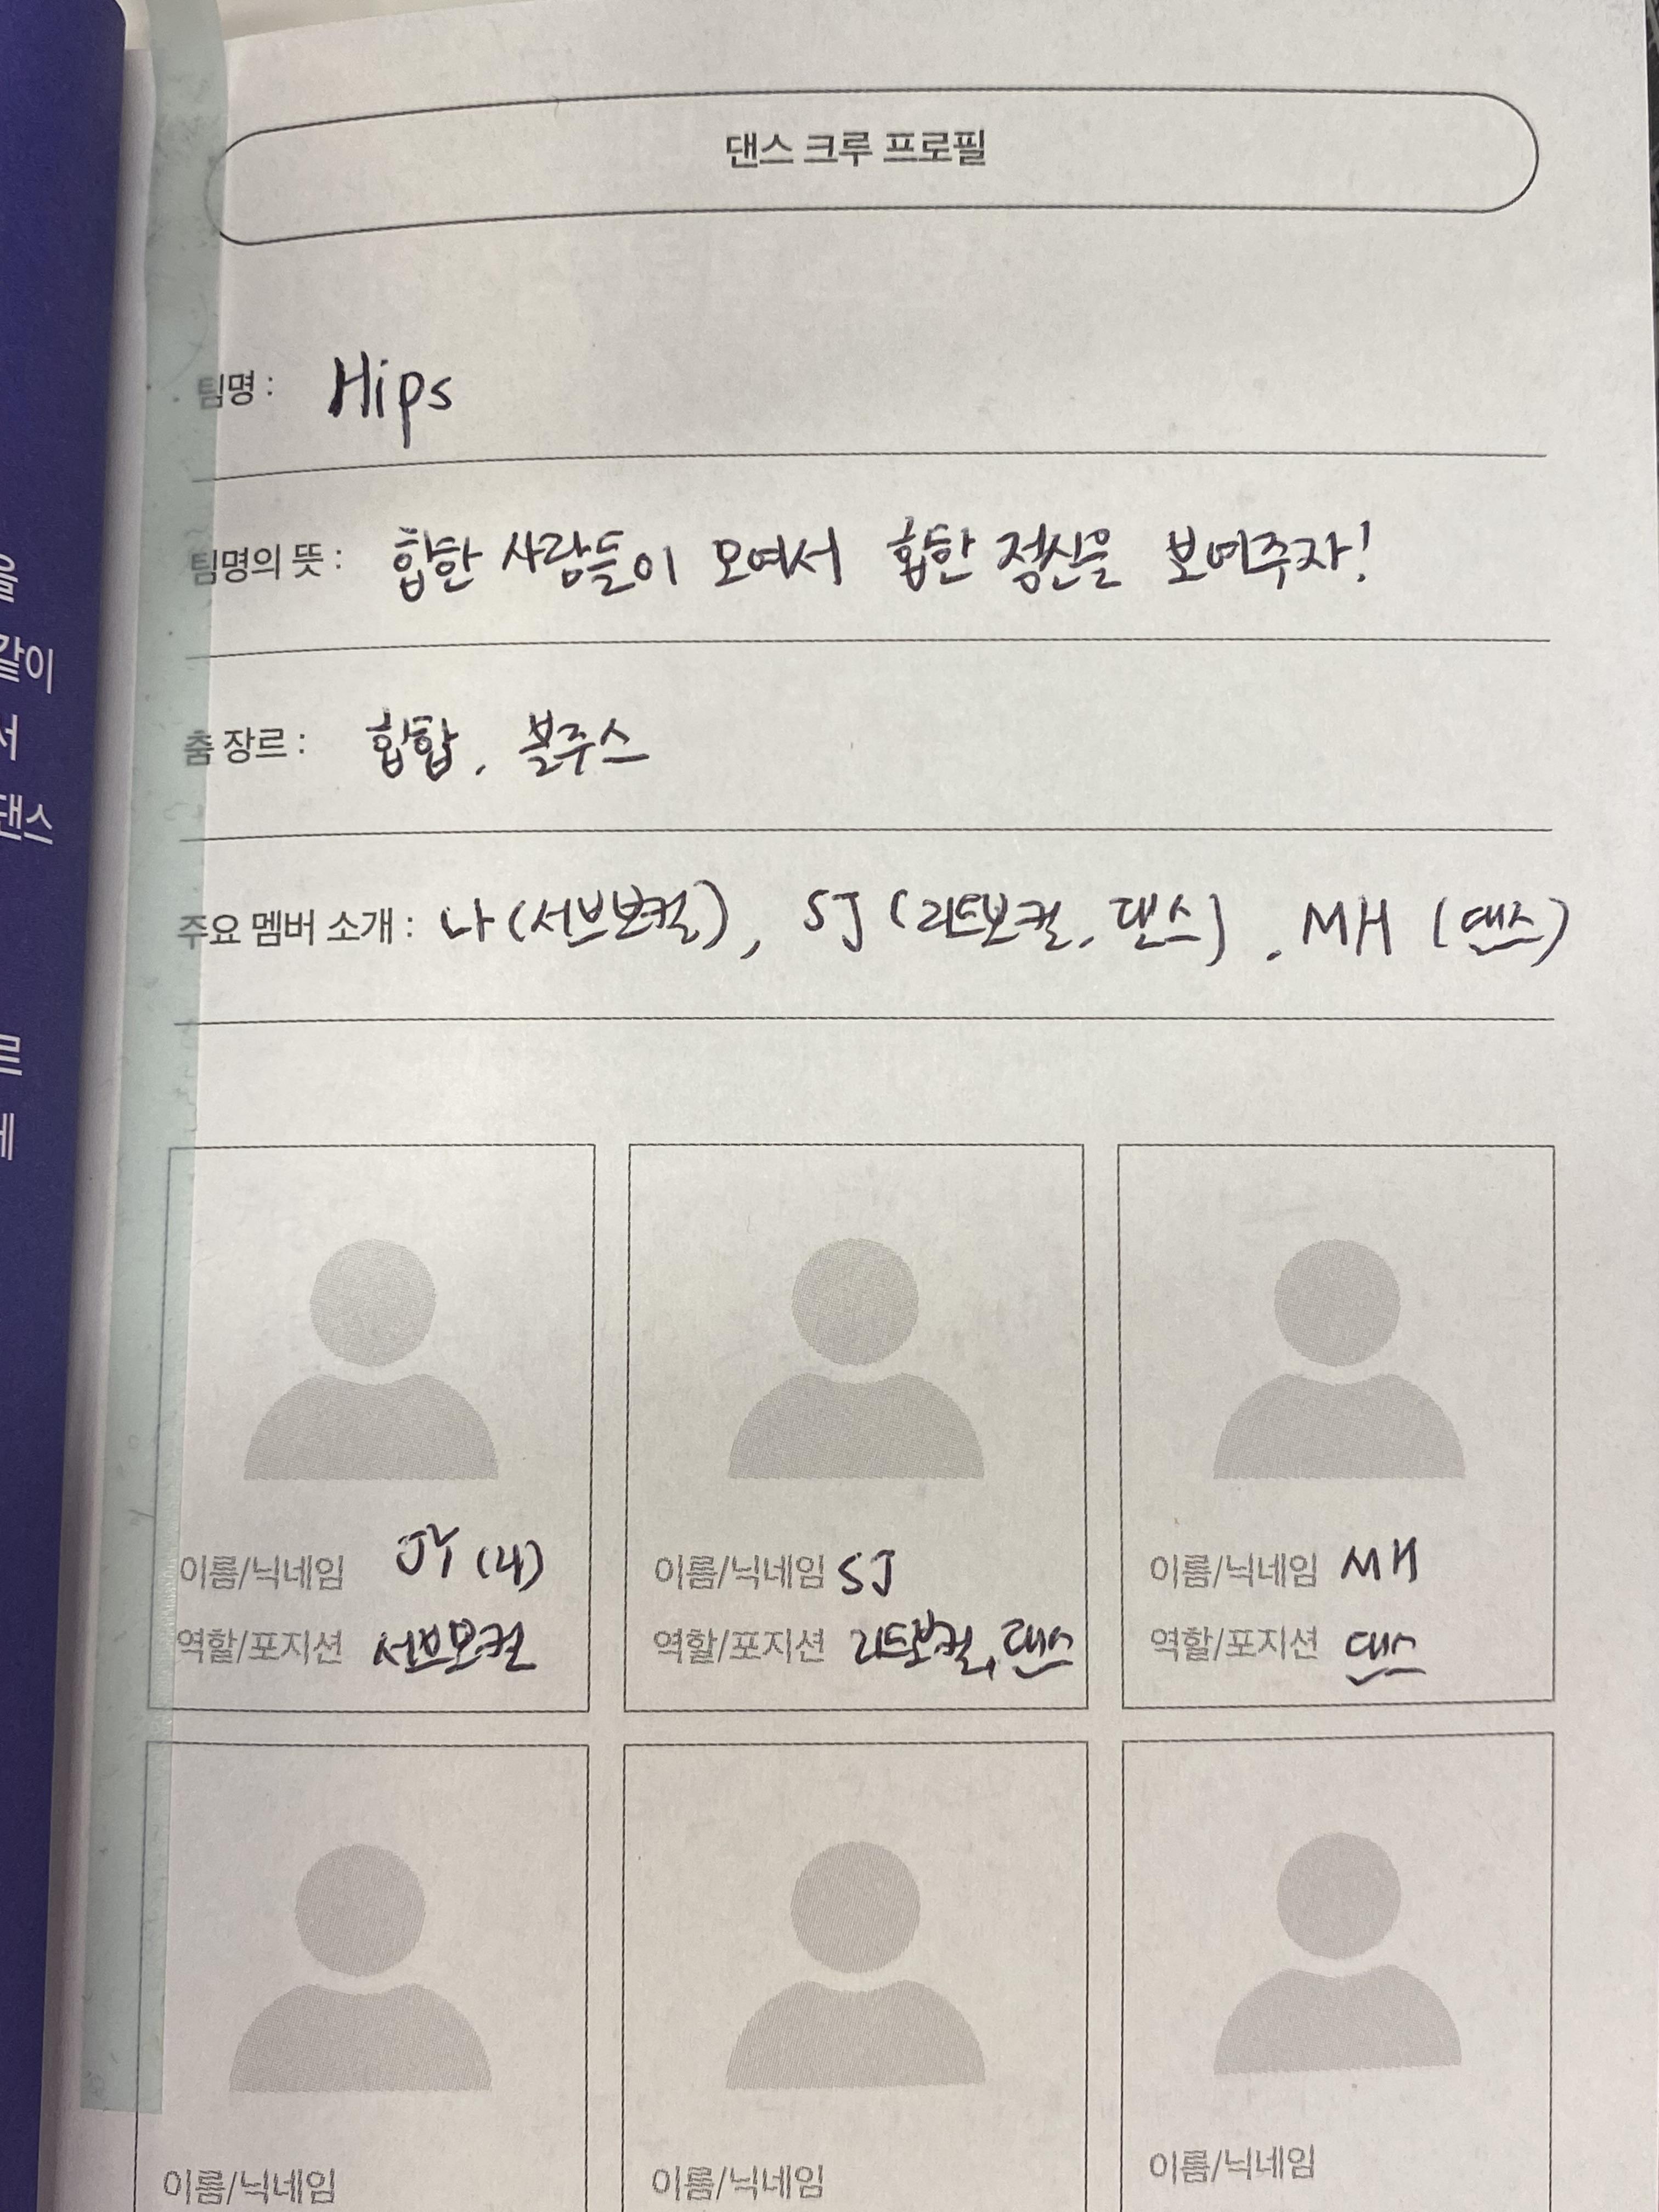 댄스 크루 프로필
팀명 : Hips
팀명의 뜻 : 힙한 사람들이 모여서 힙한 정신을 보여주자!
춤 장르 : 힙합, 블루스
주요 멤버 소개 : 나 (서브보컬), SJ (리드보컬, 댄스), MH (댄스)
이름/닉네임 JY (나)
역할/포지션 서브보컬
이름/닉네임 SJ
역할/포지션 리드보컬, 댄스
이름/닉네임 MH
역할/포지션 댄스
이름/닉네임
이름/닉네임
이름/닉네임
을
같이
서
댄스
르
에